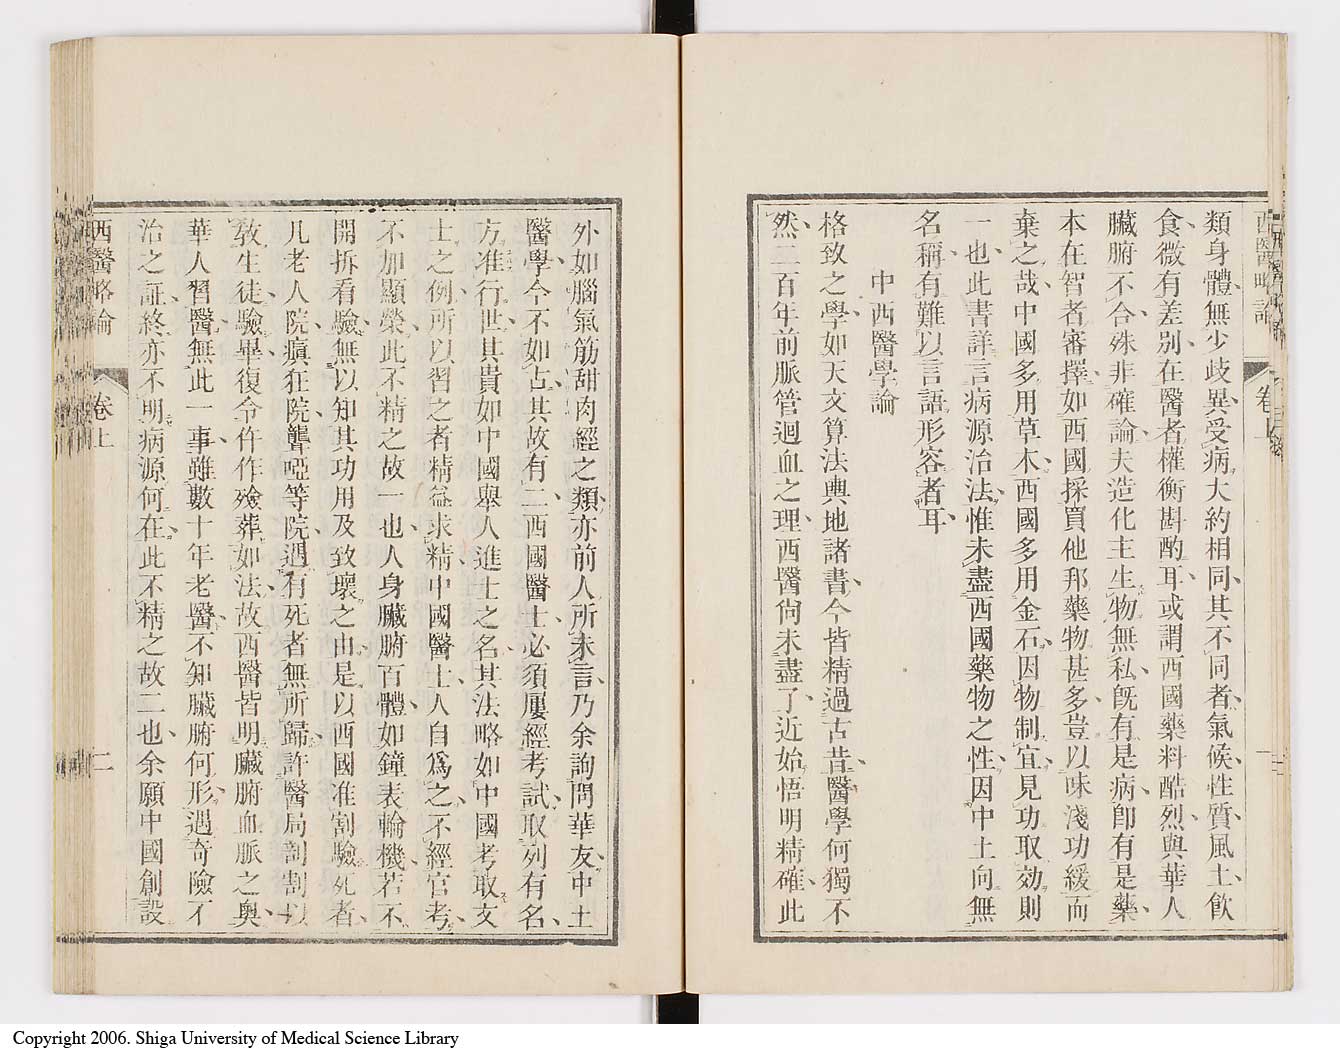 西醫略論 卷上
類身體無少歧異受病大約相同其不同者氣候性質風土飲
食微有差別在醫者權衡斟酌耳或謂西國藥料酷烈與華人
臟腑不合殊非確論夫造化主生物無私既有是病卽有是藥
本在智者審擇如西國採買他邦藥物甚多豈以味淺功緩而
棄之哉中國多用草木西國多用金石因物制宜見功取效則
一也此書詳言病源治法惟未盡西國藥物之性因中土向無
名稱有難以言語形容者耳
中西醫學論
格致之學如天文算法輿地諸書今皆精過古昔醫學何獨不
然二百年前脈管迴血之理西醫尙未盡了近始悟明精確此
外如腦氣筋甜肉經之類亦前人所未言乃余詢問華友中土
醫學今不如古其故有二西國醫士必須屢經考試取列有名
方准行世其貴如中國舉人進士之名其法略如中國考取文
士之例所以習之者精益求精中國醫士人自爲之不經官考
不加顯榮此不精之故一也人身臟腑百體如鐘表輪機若不
開拆看驗無以知其功用及致壞之由是以西國准割驗死者
凡老人院瘨狂院聾啞等院遇有死者無所歸許醫局剖割以
敎生徒驗畢復令仵作殮葬如法故西醫皆明臟腑血脈之奧
華人習醫無此一事雖數十年老醫不知臟腑何形遇奇險不
治之証終亦不明病源何在此不精之故二也余願中國創設
西醫略論 卷上 二
Copyright 2006. Shiga University of Medical Science Library